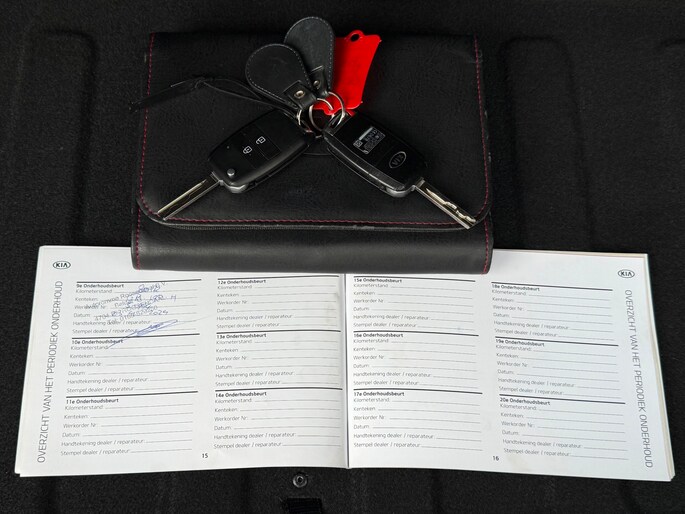 KIA
KIA
OVERZICHT VAN HET PERIODIEK ONDERHOUD
9e Onderhoudsbeurt
Kilometerstand:
Kenteken:
Werkorder Nr:
Datum:
Handtekening dealer / reparateur:
Stempel dealer / reparateur:
10e Onderhoudsbeurt
Kilometerstand:
Kenteken:
Werkorder Nr:
Datum:
Handtekening dealer / reparateur:
Stempel dealer / reparateur:
11e Onderhoudsbeurt
Kilometerstand:
Kenteken:
Werkorder Nr:
Datum:
Handtekening dealer / reparateur:
Stempel dealer / reparateur:
12e Onderhoudsbeurt
Kilometerstand:
Kenteken:
Werkorder Nr:
Datum:
Handtekening dealer / reparateur:
Stempel dealer / reparateur:
13e Onderhoudsbeurt
Kilometerstand:
Kenteken:
Werkorder Nr:
Datum:
Handtekening dealer / reparateur:
Stempel dealer / reparateur:
14e Onderhoudsbeurt
Kilometerstand:
Kenteken:
Werkorder Nr:
Datum:
Handtekening dealer / reparateur:
Stempel dealer / reparateur:
15
15e Onderhoudsbeurt
Kilometerstand:
Kenteken:
Werkorder Nr:
Datum:
Handtekening dealer / reparateur:
Stempel dealer / reparateur:
16e Onderhoudsbeurt
Kilometerstand:
Kenteken:
Werkorder Nr:
Datum:
Handtekening dealer / reparateur:
Stempel dealer / reparateur:
17e Onderhoudsbeurt
Kilometerstand:
Kenteken:
Werkorder Nr:
Datum:
Handtekening dealer / reparateur:
Stempel dealer / reparateur:
18e Onderhoudsbeurt
Kilometerstand:
Kenteken:
Werkorder Nr:
Datum:
Handtekening dealer / reparateur:
Stempel dealer / reparateur:
19e Onderhoudsbeurt
Kilometerstand:
Kenteken:
Werkorder Nr:
Datum:
Handtekening dealer / reparateur:
Stempel dealer / reparateur:
20e Onderhoudsbeurt
Kilometerstand:
Kenteken:
Werkorder Nr:
Datum:
Handtekening dealer / reparateur:
Stempel dealer / reparateur:
16
KIA
OVERZICHT VAN HET PERIODIEK ONDERHOUD